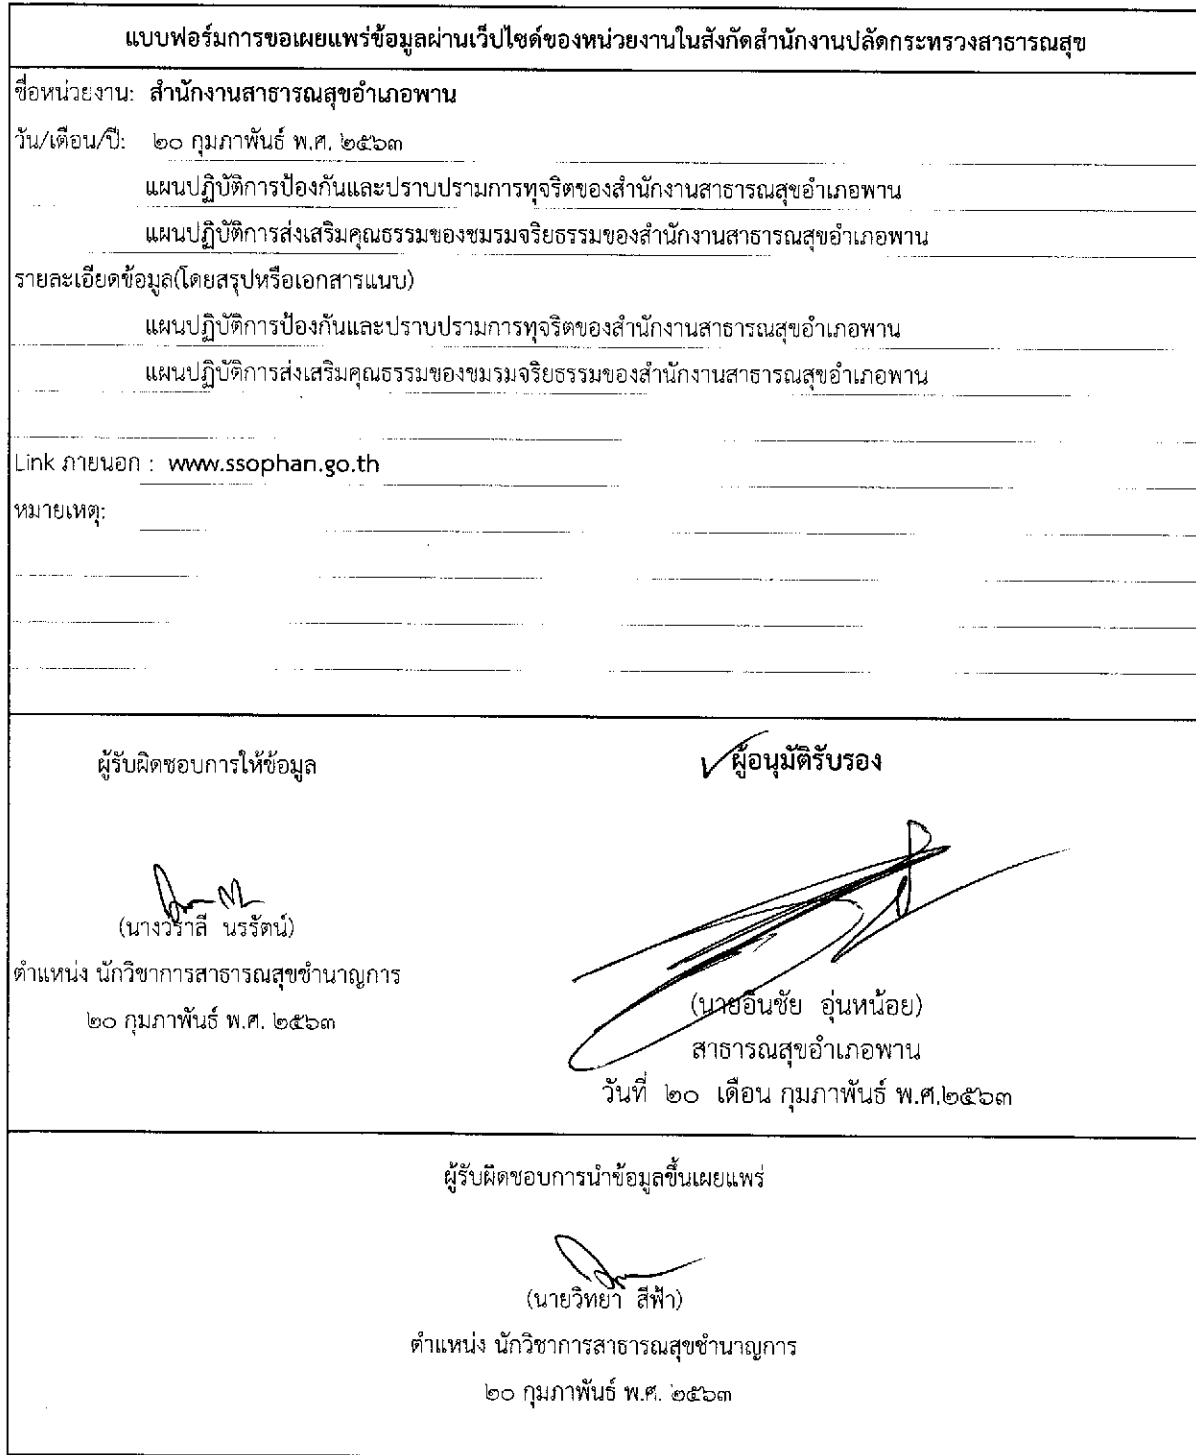 แบบฟอร์มการขอเผยแพร่ข้อมูลผ่านเว็ปไซด์ของหน่วยงานในสังกัดสำนักงานปลัดกระทรวงสาธารณสุข
ชื่อหน่วยงาน: สำนักงานสาธารณสุขอำเภอพาน
วัน/เดือน/ปี: ๒๐ กุมภาพันธ์ พ.ศ. ๒๕๖๓
แผนปฏิบัติการป้องกันและปราบปรามการทุจริตของสำนักงานสาธารณสุขอำเภอพาน
แผนปฏิบัติการส่งเสริมคุณธรรมของชมรมจริยธรรมของสำนักงานสาธารณสุขอำเภอพาน
รายละเอียดข้อมูล(โดยสรุปหรือเอกสารแนบ)
แผนปฏิบัติการป้องกันและปราบปรามการทุจริตของสำนักงานสาธารณสุขอำเภอพาน
แผนปฏิบัติการส่งเสริมคุณธรรมของชมรมจริยธรรมของสำนักงานสาธารณสุขอำเภอพาน
Link ภายนอก : www.ssophan.go.th
หมายเหตุ:
ผู้รับผิดชอบการให้ข้อมูล
(นางวราลี นรรัตน์)
ตำแหน่ง นักวิชาการสาธารณสุขชำนาญการ
๒๐ กุมภาพันธ์ พ.ศ. ๒๕๖๓
ผู้อนุมัติรับรอง
(นายอินชัย อุ่นหน้อย)
สาธารณสุขอำเภอพาน
วันที่ ๒๐ เดือน กุมภาพันธ์ พ.ศ.๒๕๖๓
ผู้รับผิดชอบการนำข้อมูลขึ้นเผยแพร่
(นายวิทยา สีฟ้า)
ตำแหน่ง นักวิชาการสาธารณสุขชำนาญการ
๒๐ กุมภาพันธ์ พ.ศ. ๒๕๖๓